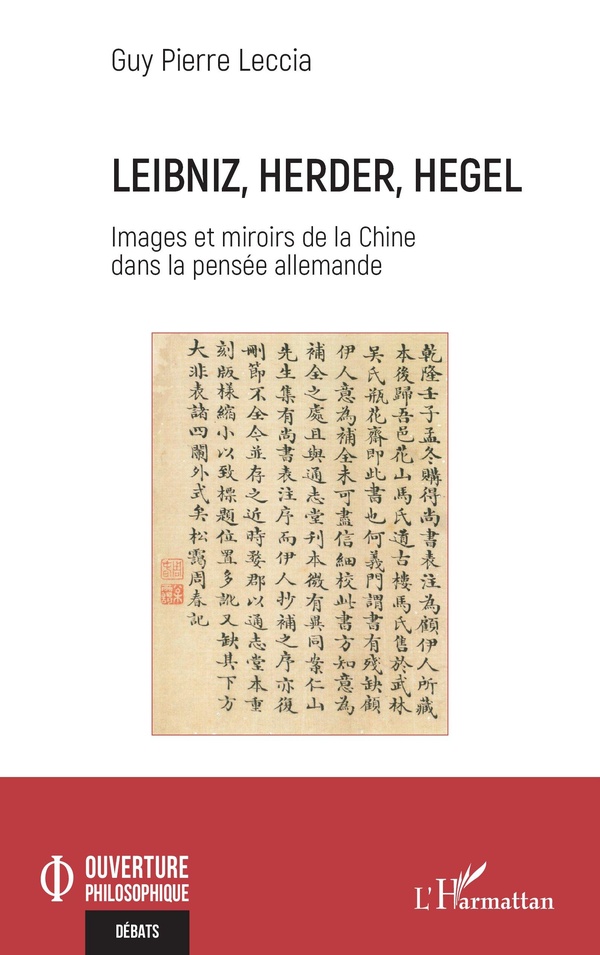 Guy Pierre Leccia
LEIBNIZ, HERDER, HEGEL
Images et miroirs de la Chine
dans la pensée allemande
乾隆壬子孟冬購得尚書表注為顧伊人所藏
本後歸吾邑花山馬氏道古樓馬氏售於武林
吳氏瓶花齋即此書也何義門謂書有殘缺顧
伊人意為補全未可盡信細校此書方知意為
補全之處且與通志堂刊本微有異同案仁山
先生集有尚書表注序而伊人抄補之序亦復
刪節不全今並存之近時婺郡以通志堂本重
刻版樣縮小以致標題位置多訛又缺其下方
大非表諸四闌外式矣松靄周春記
OUVERTURE
PHILOSOPHIQUE
DÉBATS
L'Harmattan